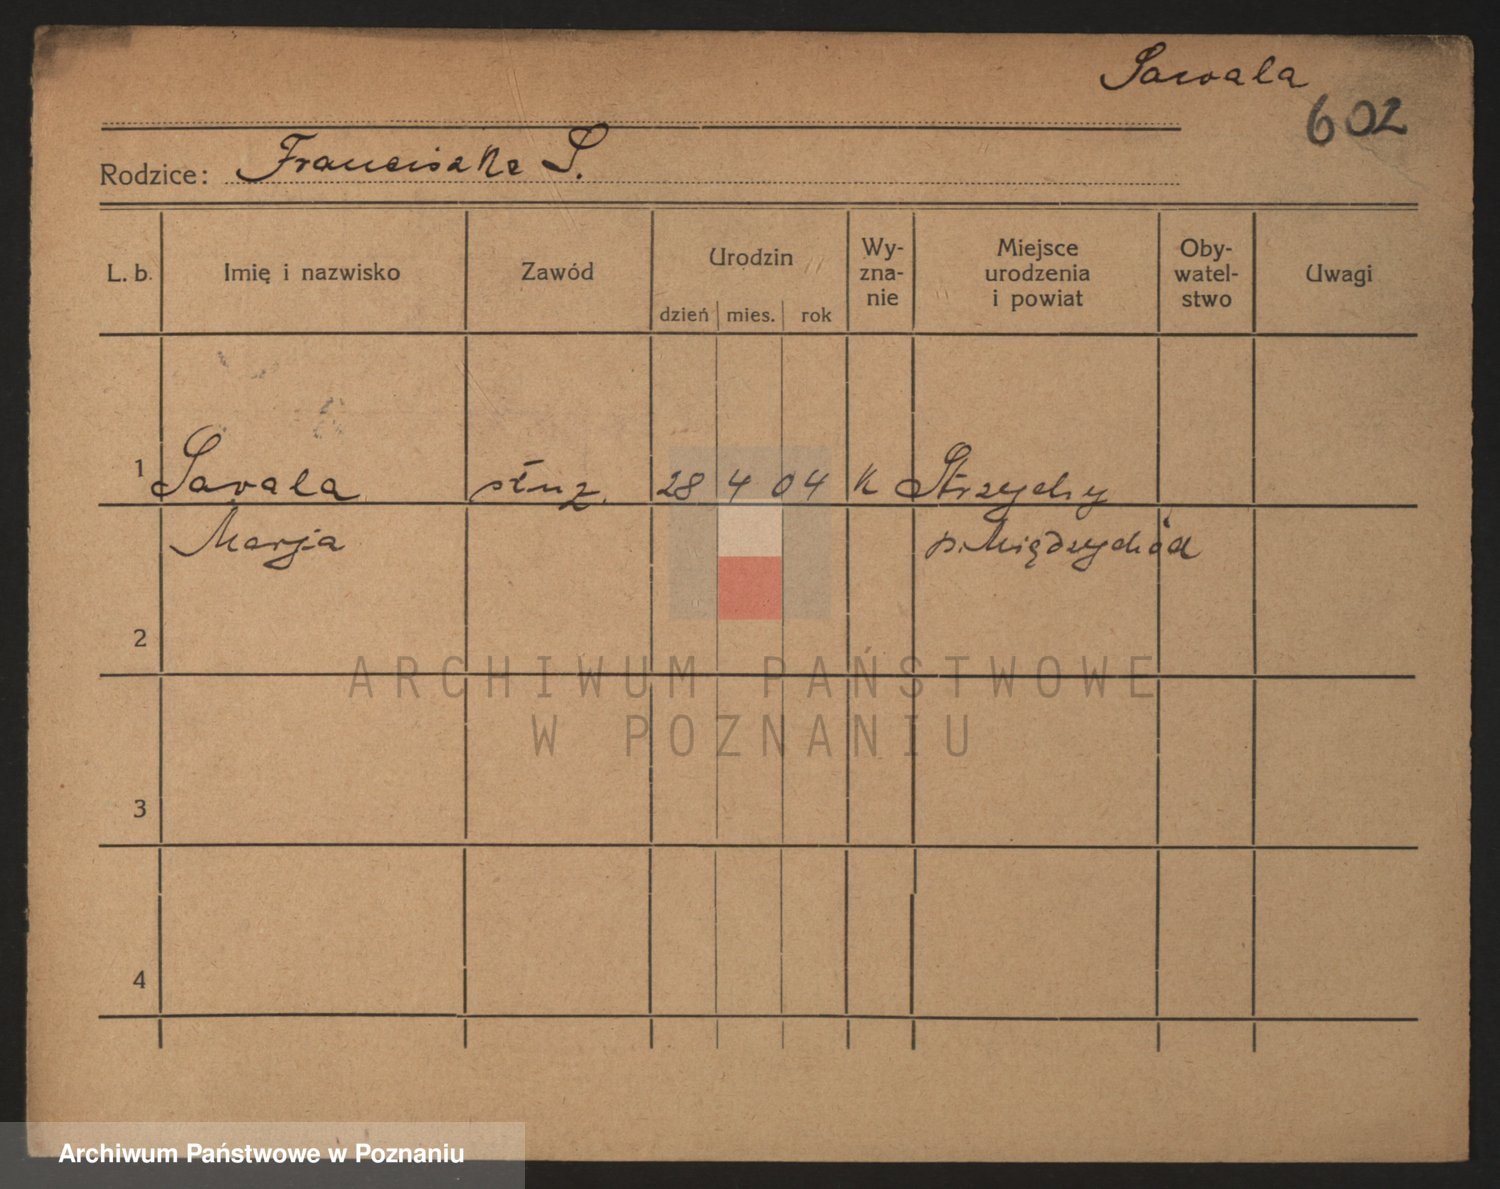 Sawala
602
Rodzice: Franciszka S.
L. b.
Imię i nazwisko
Zawód
Urodzin
dzień
mies.
rok
Wy-
zna-
nie
Miejsce
urodzenia
i powiat
Oby-
watel-
stwo
Uwagi
1 Savala służ. 28 4 04 K Strzychy
Marja p. Międzychód
2
ARCHIWUM PAŃSTWOWE
W POZNANIU
3
4
Archiwum Państwowe w Poznaniu